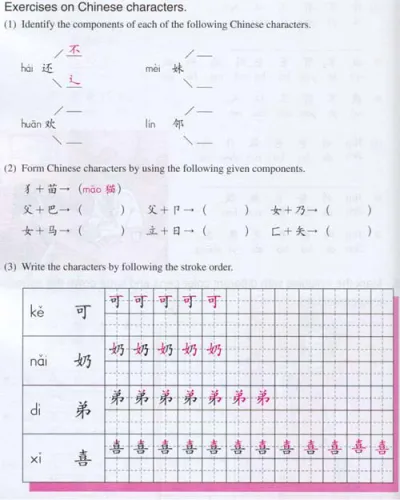 Exercises on Chinese characters.
(1) Identify the components of each of the following Chinese characters.
不
hái 还 mèi 妹
辶
huān 欢 lín 邻
(2) Form Chinese characters by using the following given components.
犭+苗→ (māo 猫)
父+巴→ ( ) 父+卩→ ( ) 女+乃→ ( )
女+马→ ( ) 立+日→ ( ) 匚+矢→ ( )
(3) Write the characters by following the stroke order.
kě 可 可 可 可 可 可
nǎi 奶 奶 奶 奶 奶 奶
dì 弟 弟 弟 弟 弟 弟 弟 弟
xǐ 喜 喜 喜 喜 喜 喜 喜 喜 喜 喜 喜 喜 喜